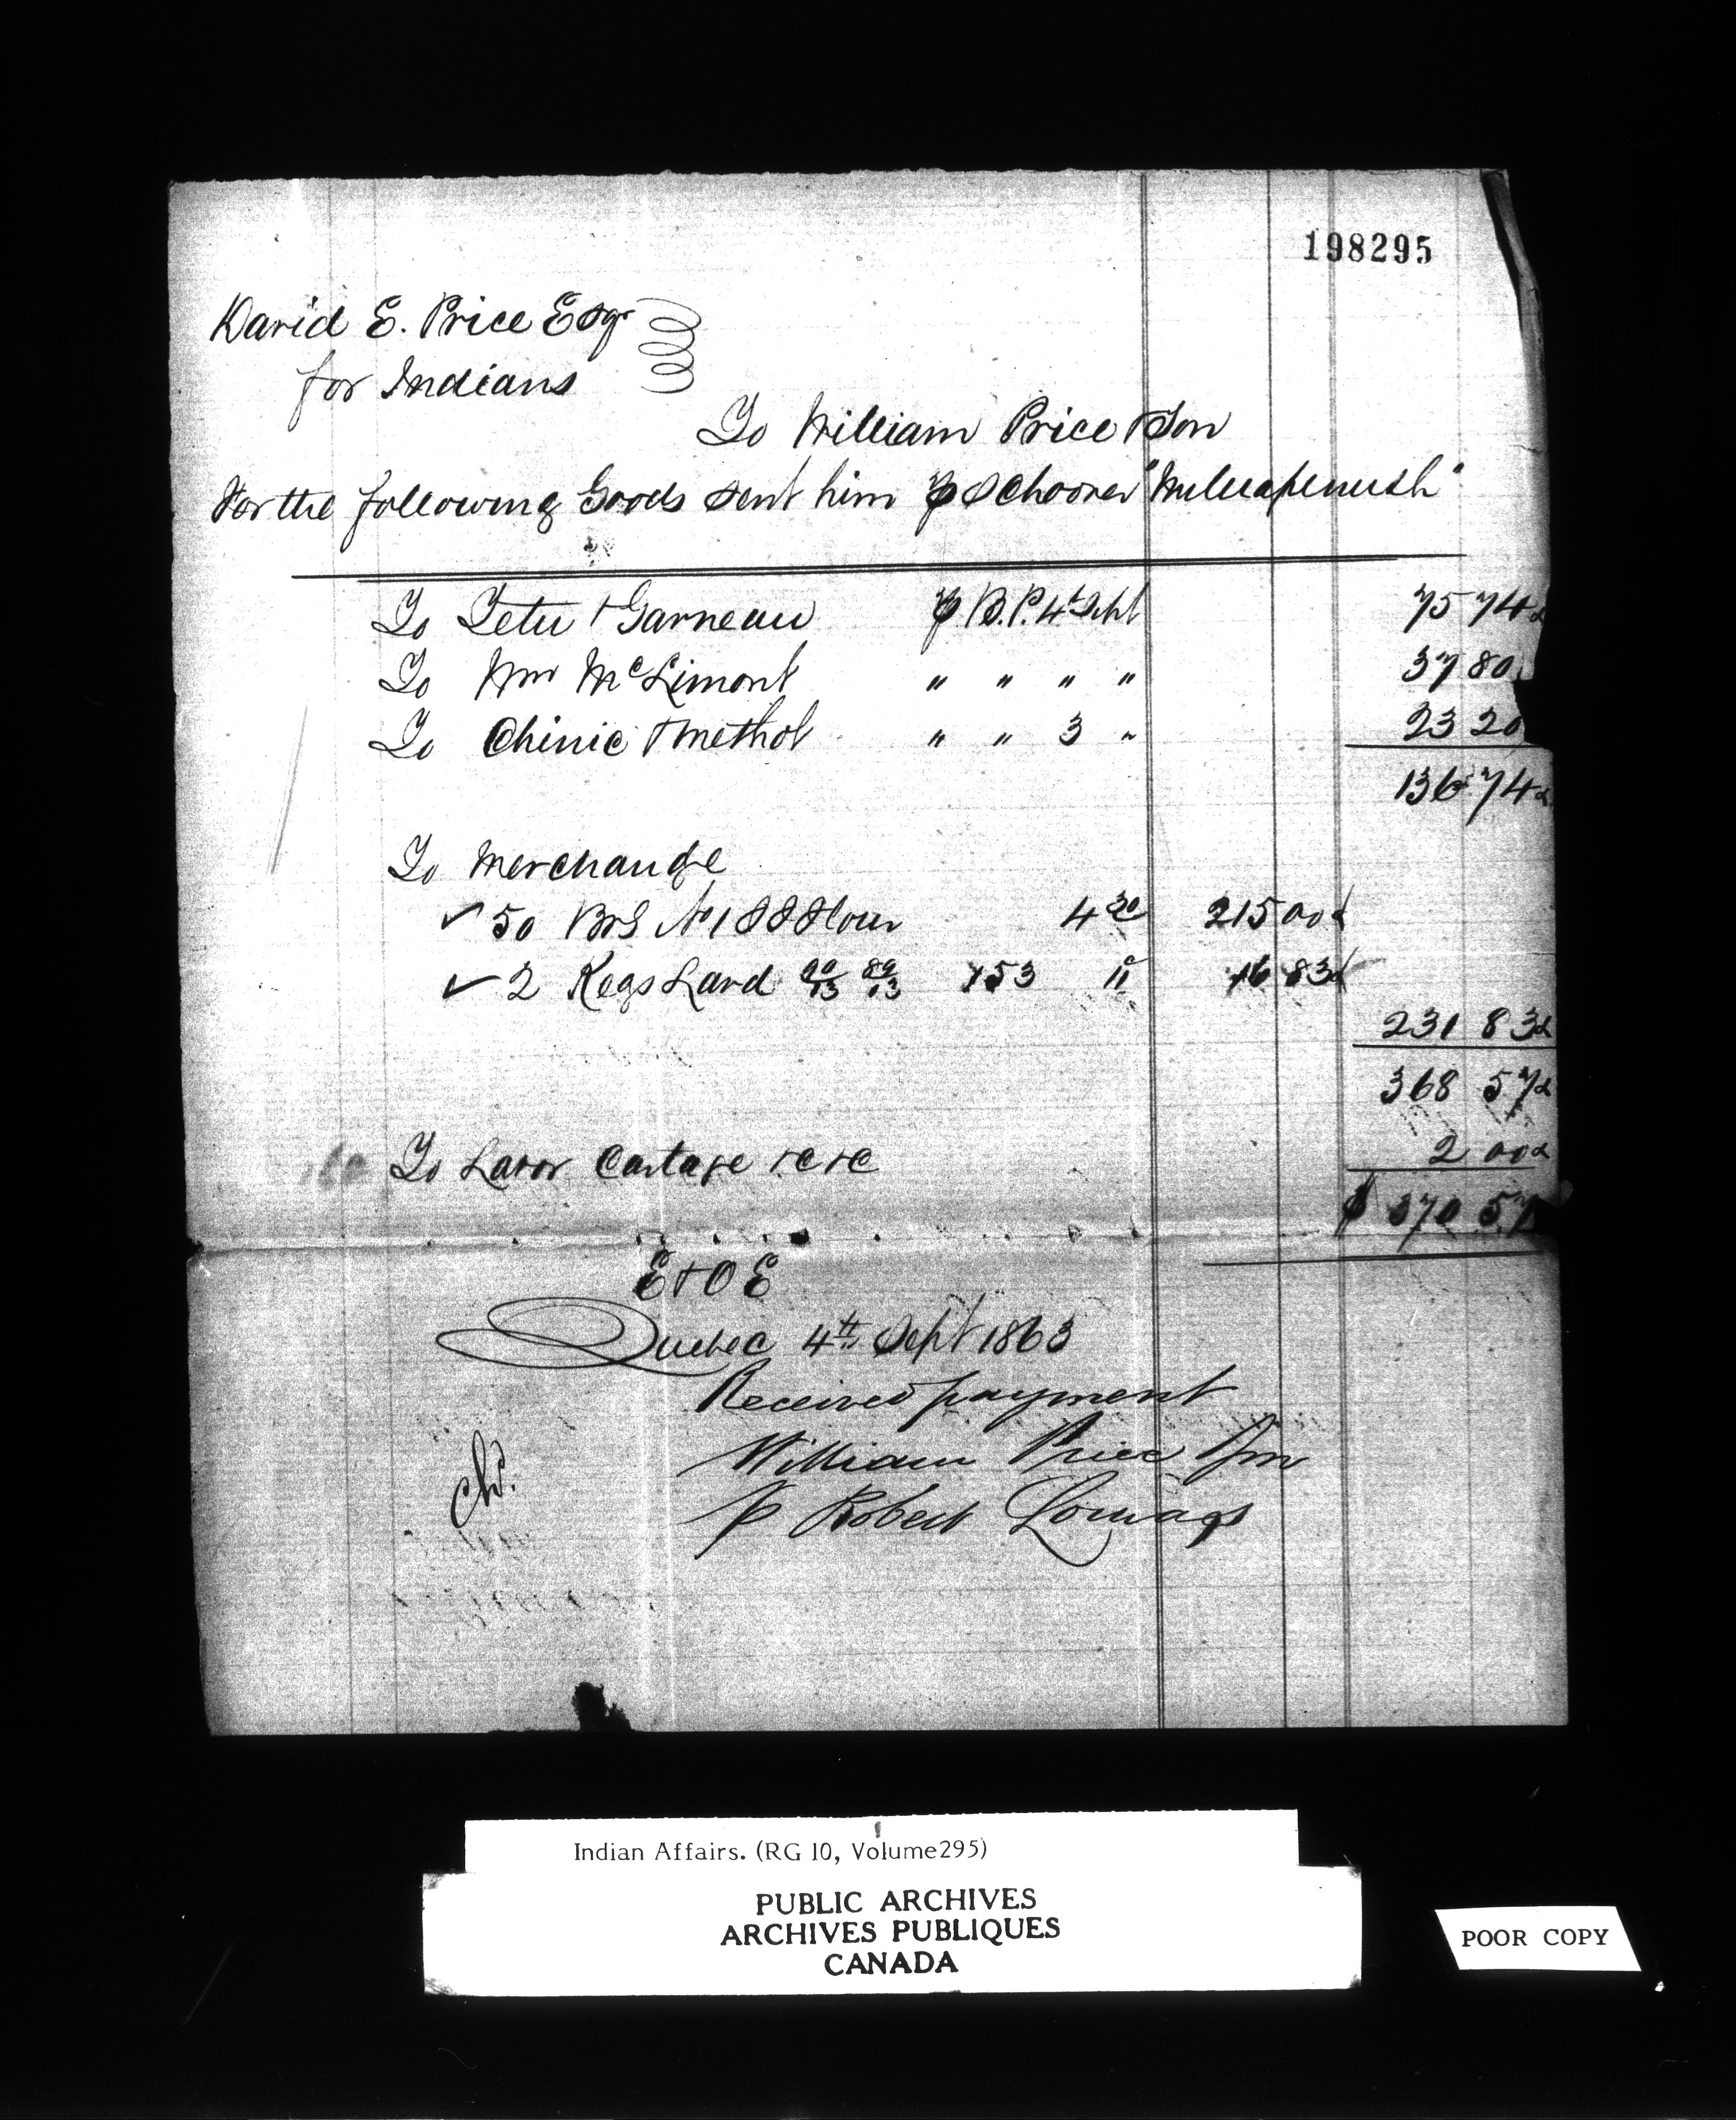 198295
David E. Price Esqr
for Indians
To William Price & Son
For the following Goods sent him ⅌ Schooner
To Tetu & Garneau ⅌ B.P. 4th Sept 75 74
To Wm McLimont " " " " 37 80
To Chinic & Methot " " 3 " 23 20
136 74
To Merchandze
✓ 50 Brls No 1 Flour 4 30 215 00
✓ 2 Kegs Lard 90/13 89/13 153 11c 16 83
231 83
368 57
To Labor Cartage &c &c 2 00
$ 370 57
E & O E
Quebec 4th Sept 1863
Received payment
William Price & Son
p Robert
Indian Affairs. (RG 10, Volume295)
PUBLIC ARCHIVES
ARCHIVES PUBLIQUES
CANADA
POOR COPY